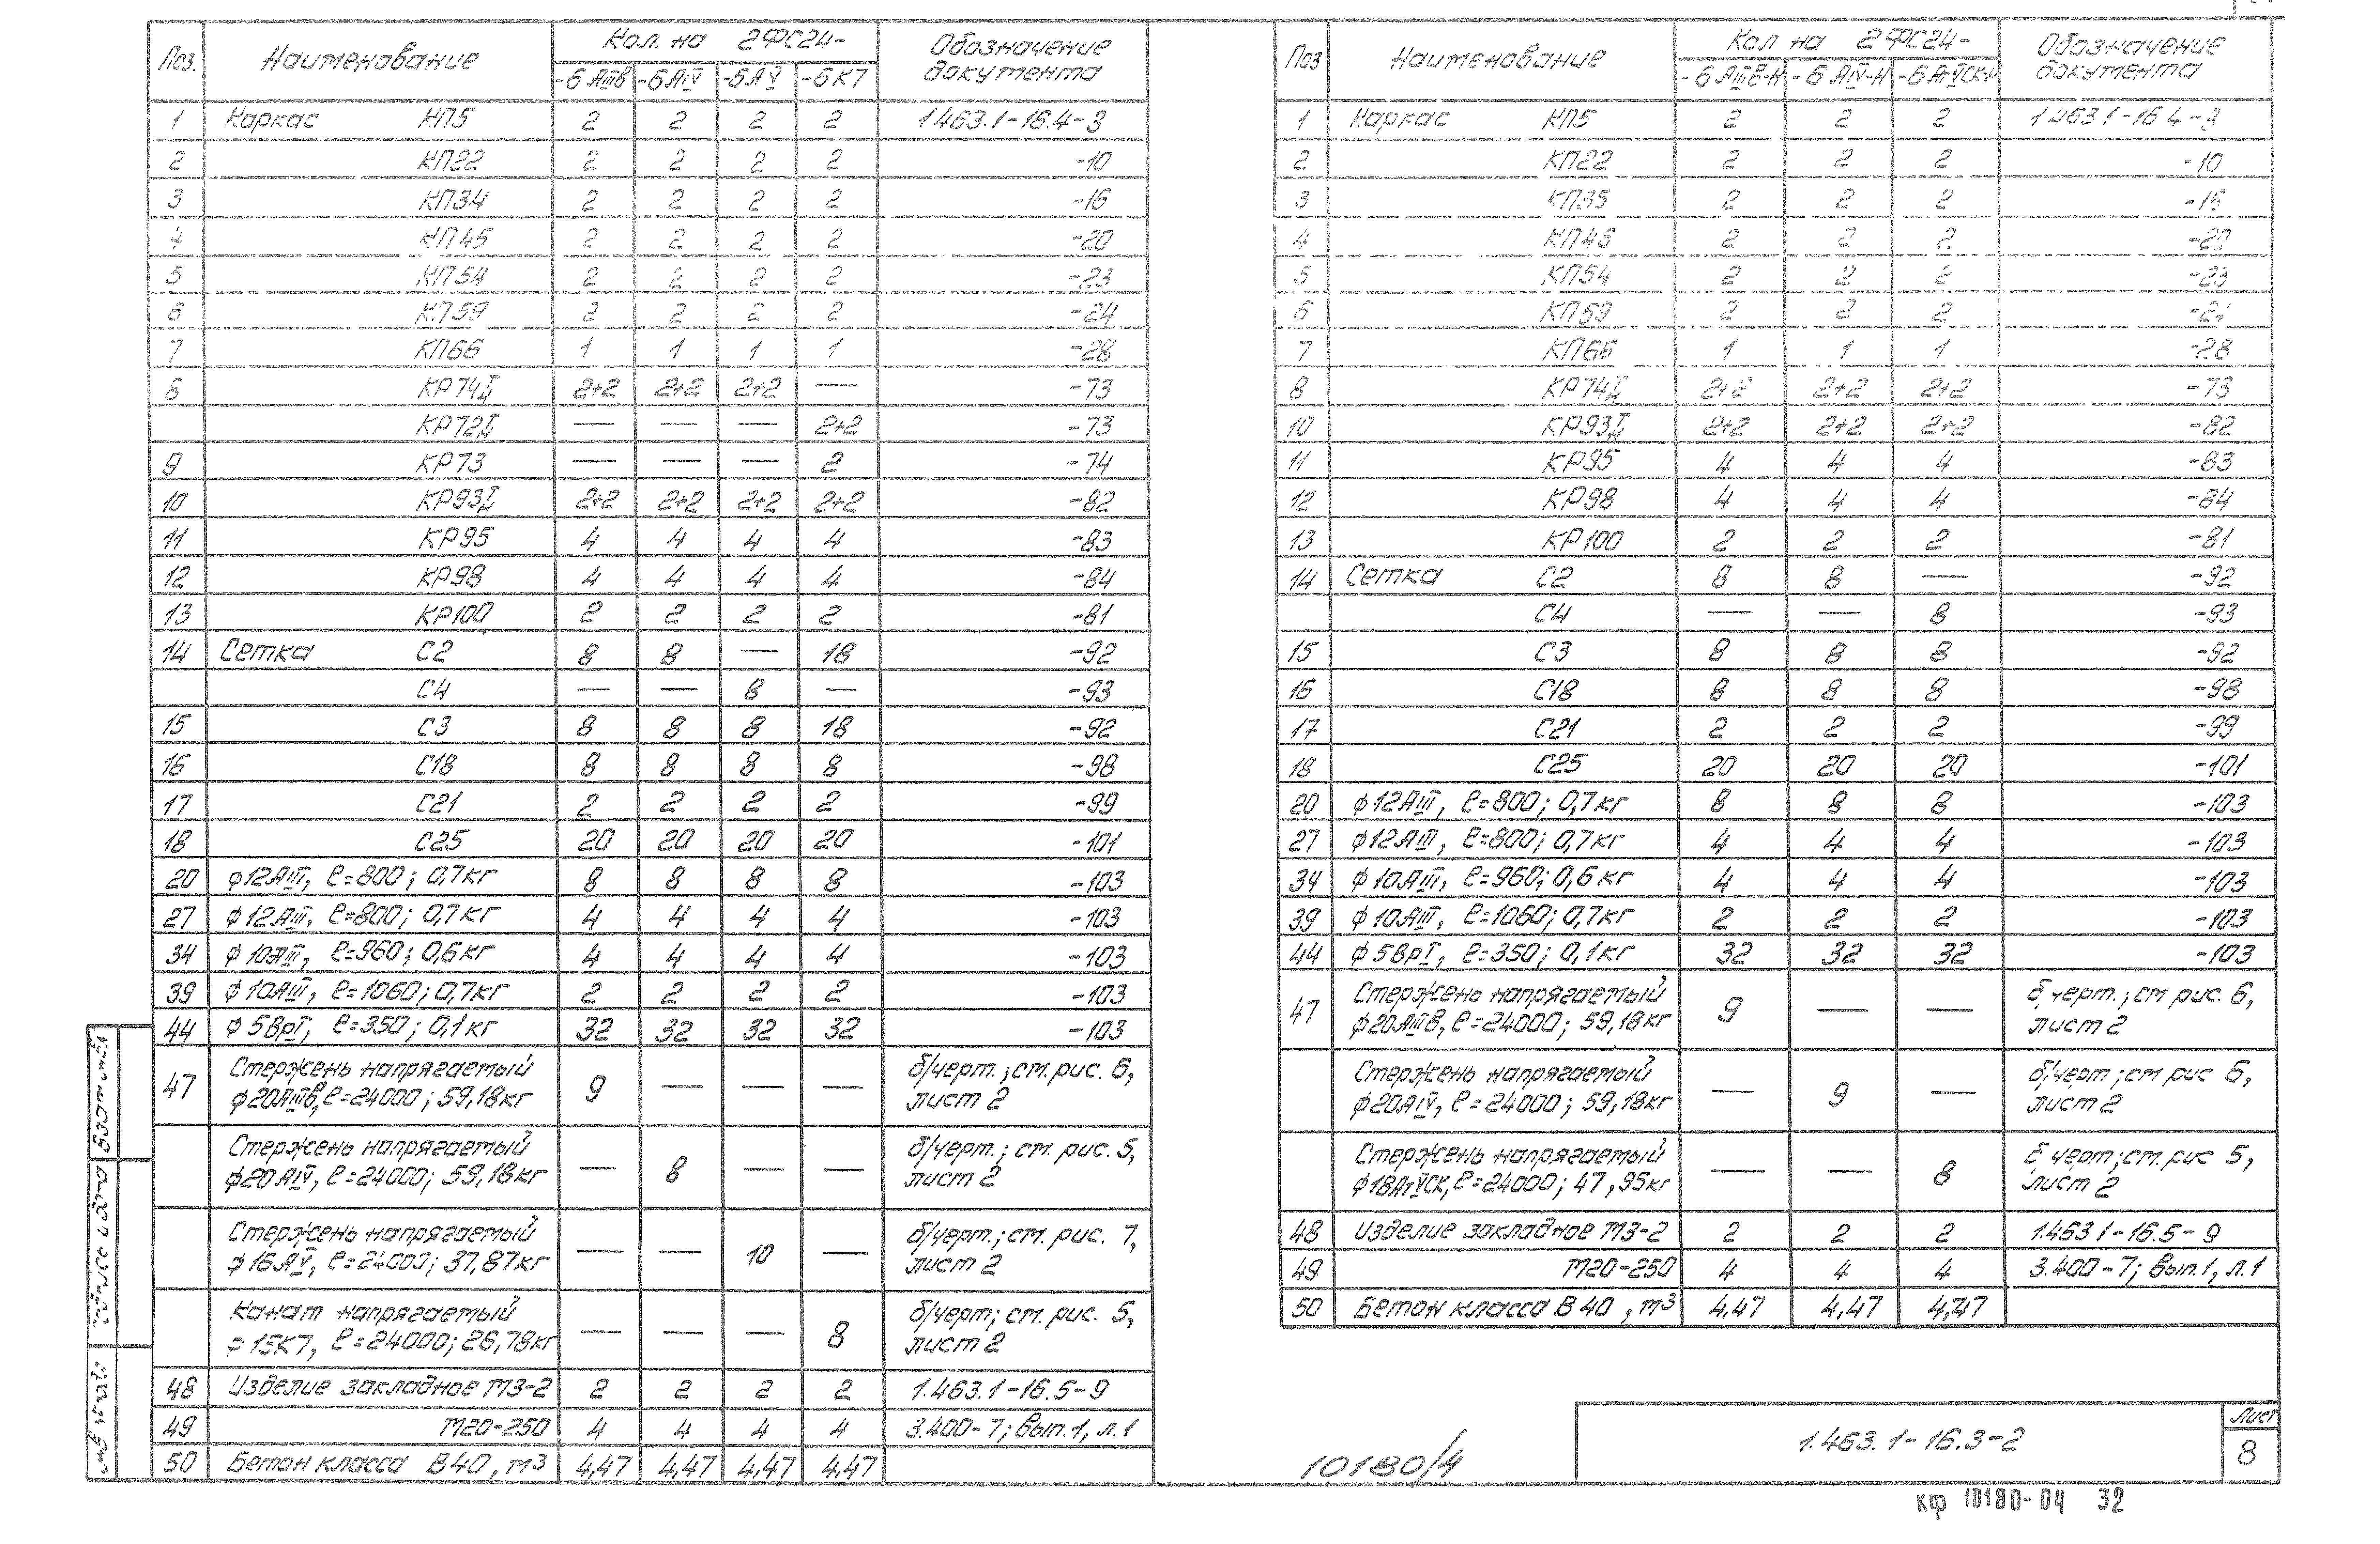 Поз. Наименование Кол. на 2ФС24- Обозначение документа
-6АIIIв -6АIV -6АV -6К7
1 Каркас КП5 2 2 2 2 1463.1-16.4-3
2 КП22 2 2 2 2 -10
3 КП34 2 2 2 2 -16
4 КП45 2 2 2 2 -20
5 КП54 2 2 2 2 -23
6 КП59 2 2 2 2 -24
7 КП66 1 1 1 1 -28
8 КР74 I/Н 2+2 2+2 2+2 — -73
КР72 I/Н — — — 2+2 -73
9 КР73 — — — 2 -74
10 КР93 I/Н 2+2 2+2 2+2 2+2 -82
11 КР95 4 4 4 4 -83
12 КР98 4 4 4 4 -84
13 КР100 2 2 2 2 -81
14 Сетка С2 8 8 — 18 -92
С4 — — 8 — -93
15 С3 8 8 8 18 -92
16 С18 8 8 8 8 -98
17 С21 2 2 2 2 -99
18 С25 20 20 20 20 -101
20 ф12АIII, ℓ=800; 0,7кг 8 8 8 8 -103
27 ф12АIII, ℓ=800; 0,7кг 4 4 4 4 -103
34 ф10АIII, ℓ=960; 0,6кг 4 4 4 4 -103
39 ф10АIII, ℓ=1060; 0,7кг 2 2 2 2 -103
44 ф5ВрI, ℓ=350; 0,1кг 32 32 32 32 -103
47 Стержень напрягаемый 9 — — — б/черт.; см. рис. 6,
ф20АIIIв, ℓ=24000; 59,18кг лист 2
Стержень напрягаемый — 8 — — б/черт.; см. рис. 5,
ф20АIV, ℓ=24000; 59,18кг лист 2
Стержень напрягаемый — — 10 — б/черт.; см. рис. 7,
ф16АV, ℓ=24000; 37,87кг лист 2
Канат напрягаемый — — — 8 б/черт; см. рис. 5,
15К7, ℓ=24000; 26,78кг лист 2
48 Изделие закладное М3-2 2 2 2 2 1.463.1-16.5-9
49 М20-250 4 4 4 4 3.400-7; вып.1, л.1
50 Бетон класса В40, м3 4,47 4,47 4,47 4,47
Поз Наименование Кол на 2ФС24- Обозначение документа
-6АIIIв-Н -6АIV-Н -6АтVСК-Н
1 Каркас КП5 2 2 2 1463.1-16 4-3
2 КП22 2 2 2 -10
3 КП35 2 2 2 -15
4 КП46 2 2 2 -20
5 КП54 2 2 2 -23
6 КП59 2 2 2 -24
7 КП66 1 1 1 -28
8 КР74 I/Н 2+2 2+2 2+2 -73
10 КР93 I/Н 2+2 2+2 2+2 -82
11 КР95 4 4 4 -83
12 КР98 4 4 4 -84
13 КР100 2 2 2 -81
14 Сетка С2 8 8 — -92
С4 — — 8 -93
15 С3 8 8 8 -92
16 С18 8 8 8 -98
17 С21 2 2 2 -99
18 С25 20 20 20 -101
20 ф12АIII, ℓ=800; 0,7кг 8 8 8 -103
27 ф12АIII, ℓ=800; 0,7кг 4 4 4 -103
34 ф10АIII, ℓ=960; 0,6кг 4 4 4 -103
39 ф10АIII, ℓ=1060; 0,7кг 2 2 2 -103
44 ф5ВрI, ℓ=350; 0,1кг 32 32 32 -103
47 Стержень напрягаемый 9 — — б черт.; см рис. 6,
ф20АIIIв, ℓ=24000; 59,18кг лист 2
Стержень напрягаемый — 9 — б/черт; см рис 6,
ф20АIV, ℓ=24000; 59,18кг лист 2
Стержень напрягаемый — — 8 б черт; см. рис 5,
ф18АтVСК, ℓ=24000; 47,95кг лист 2
48 Изделие закладное М3-2 2 2 2 1.463 1-16.5-9
49 М20-250 4 4 4 3.400-7; вып.1, л.1
50 Бетон класса В40, м3 4,47 4,47 4,47
10180/4
1.463.1-16.3-2
Лист
8
кф 10180-04 32